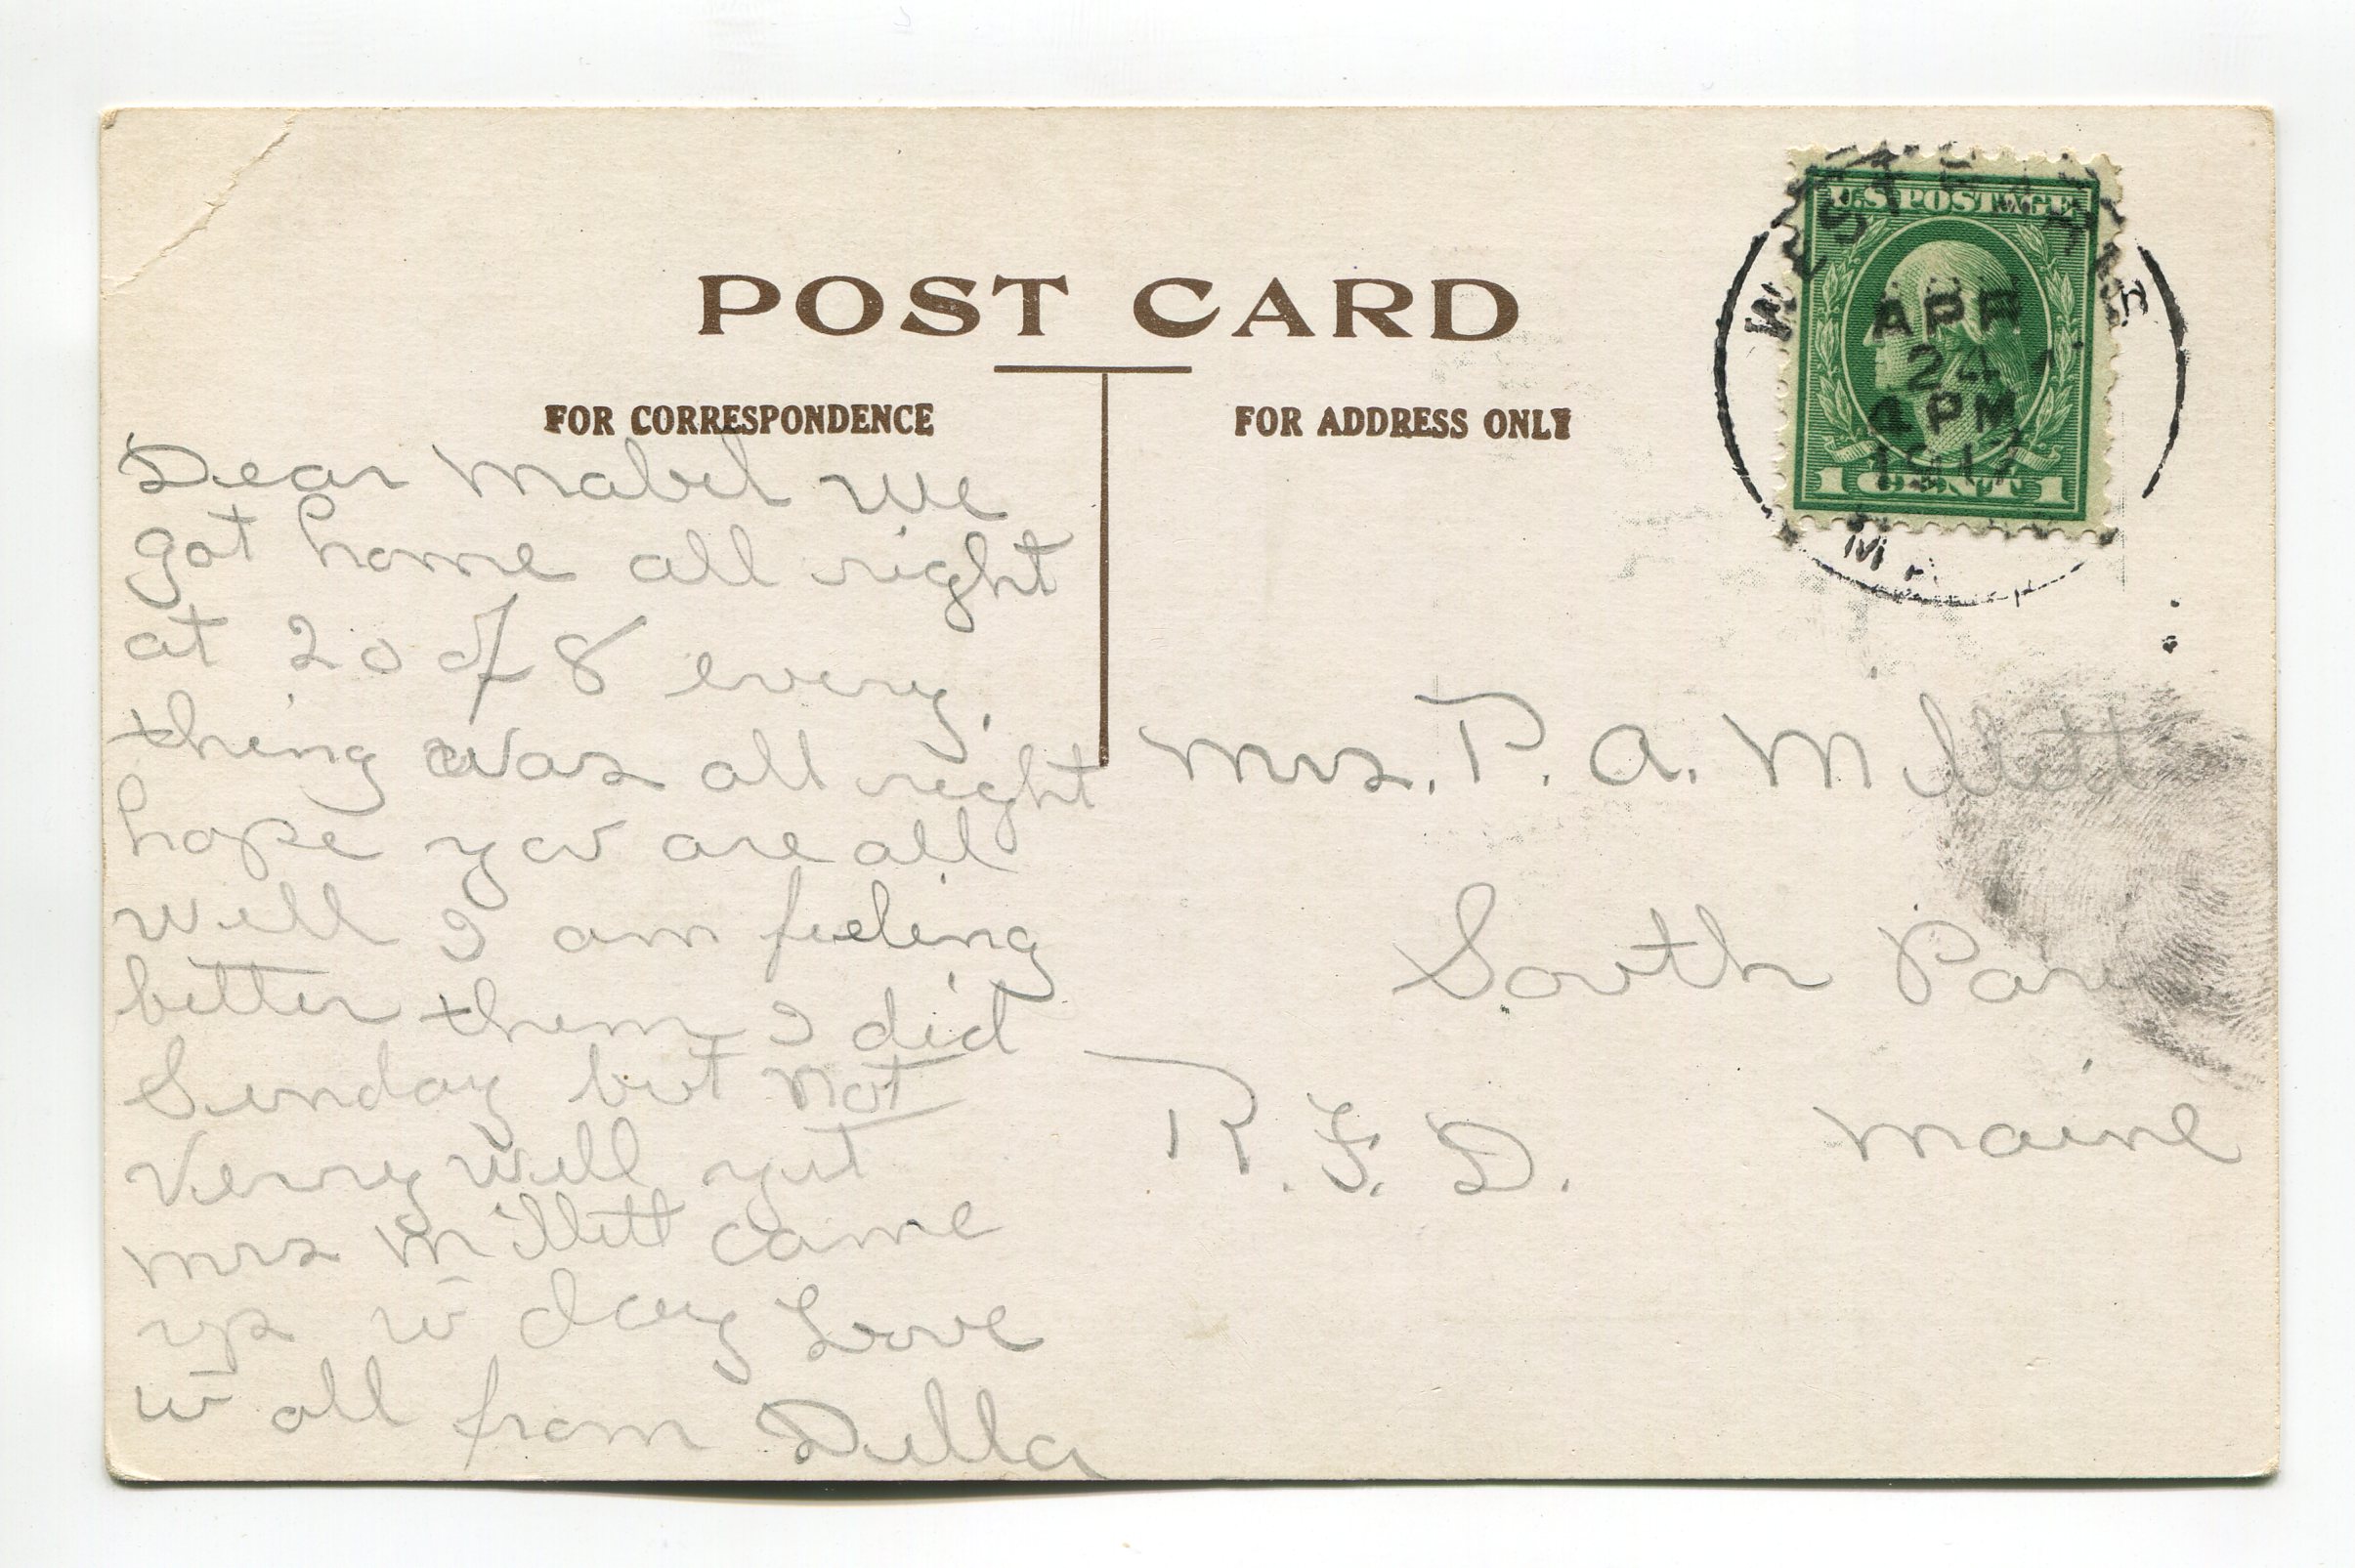 POST CARD
FOR CORRESPONDENCE
FOR ADDRESS ONLY
U.S. POSTAGE
APR
24
4 PM
1917
1 CENT 1
Dear Mabel we
got home all right
at 20 of 8 every,
thing was all right
hope you are all
well I am feeling
better them I did
Sunday but not
Verry well yet
Mrs Millett came
up to day Love
to all from Della
Mrs. P. A. Millett
South Paris
R. F. D. Maine